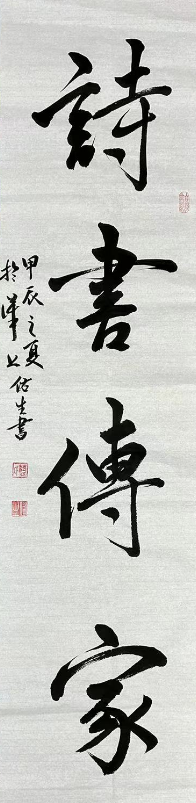 詩書傳家
甲辰之夏
於漢上佑生書